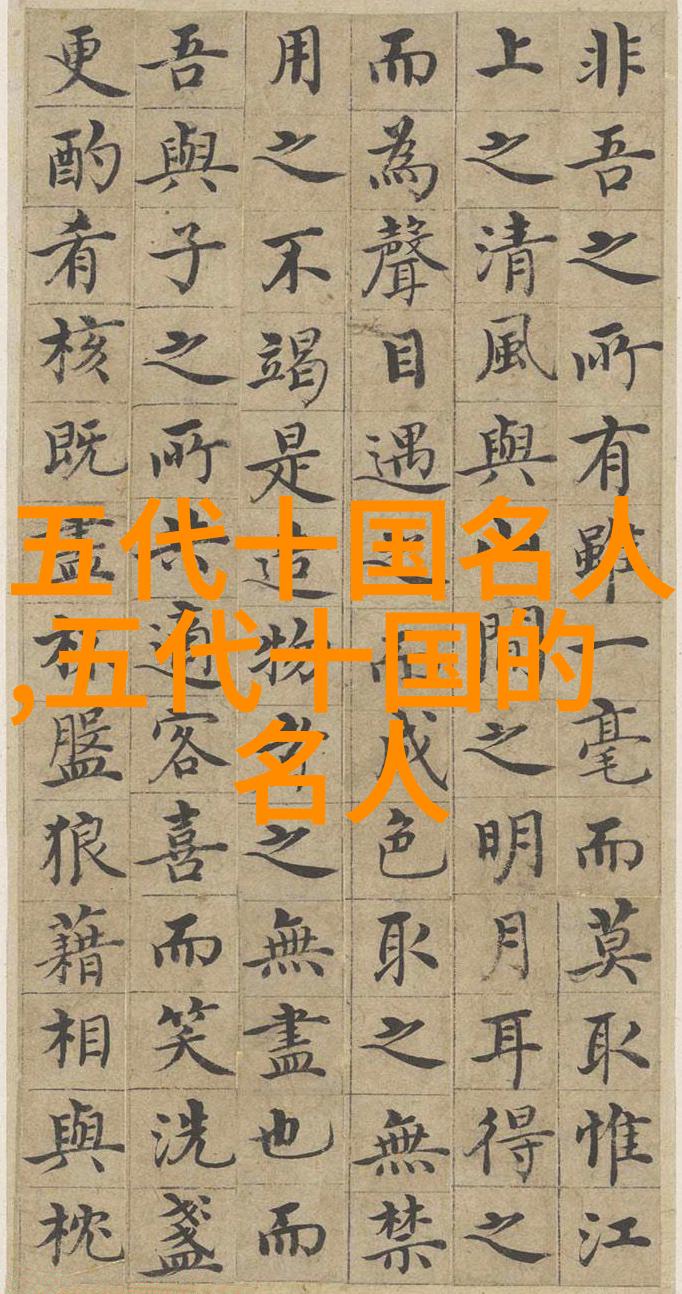 非吾之所有雖一毫而莫取惟江
上之清風與山間之明月耳得之
而為聲目遇之而成色取之無禁
用之不竭是造物者之無盡也而
吾與子之所共適客喜而笑洗盞
更酌肴核既盡杯盤狼藉相與枕
五代十国名人
,五代十国的
名人